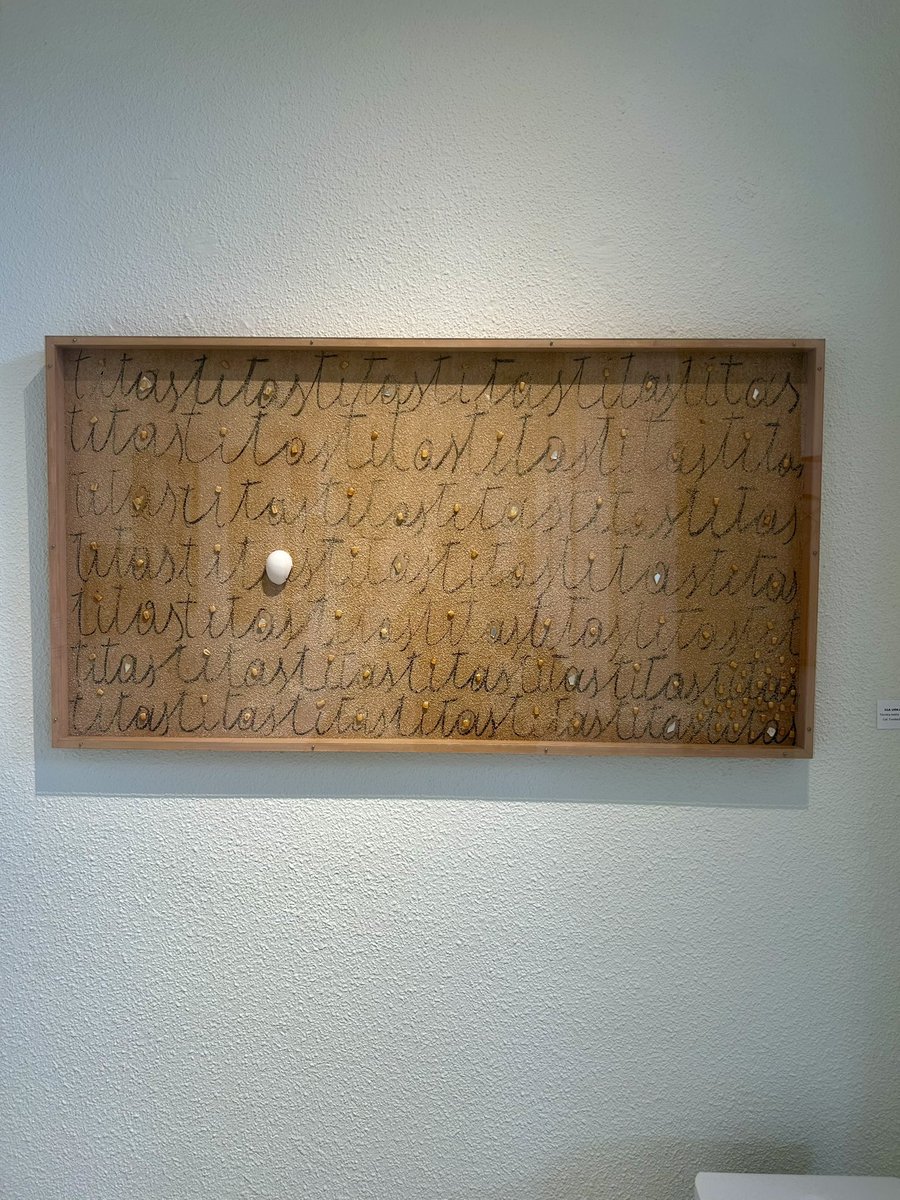 titastitastitastitastitastitas
titastitastitastitastitastitas
titastitastitastitastitastitas
titastitastitastitastitastitas
titastitastitastitastitastitastit
titastitastitastitastitastitastitas
titastitastitastitastitastitastitas